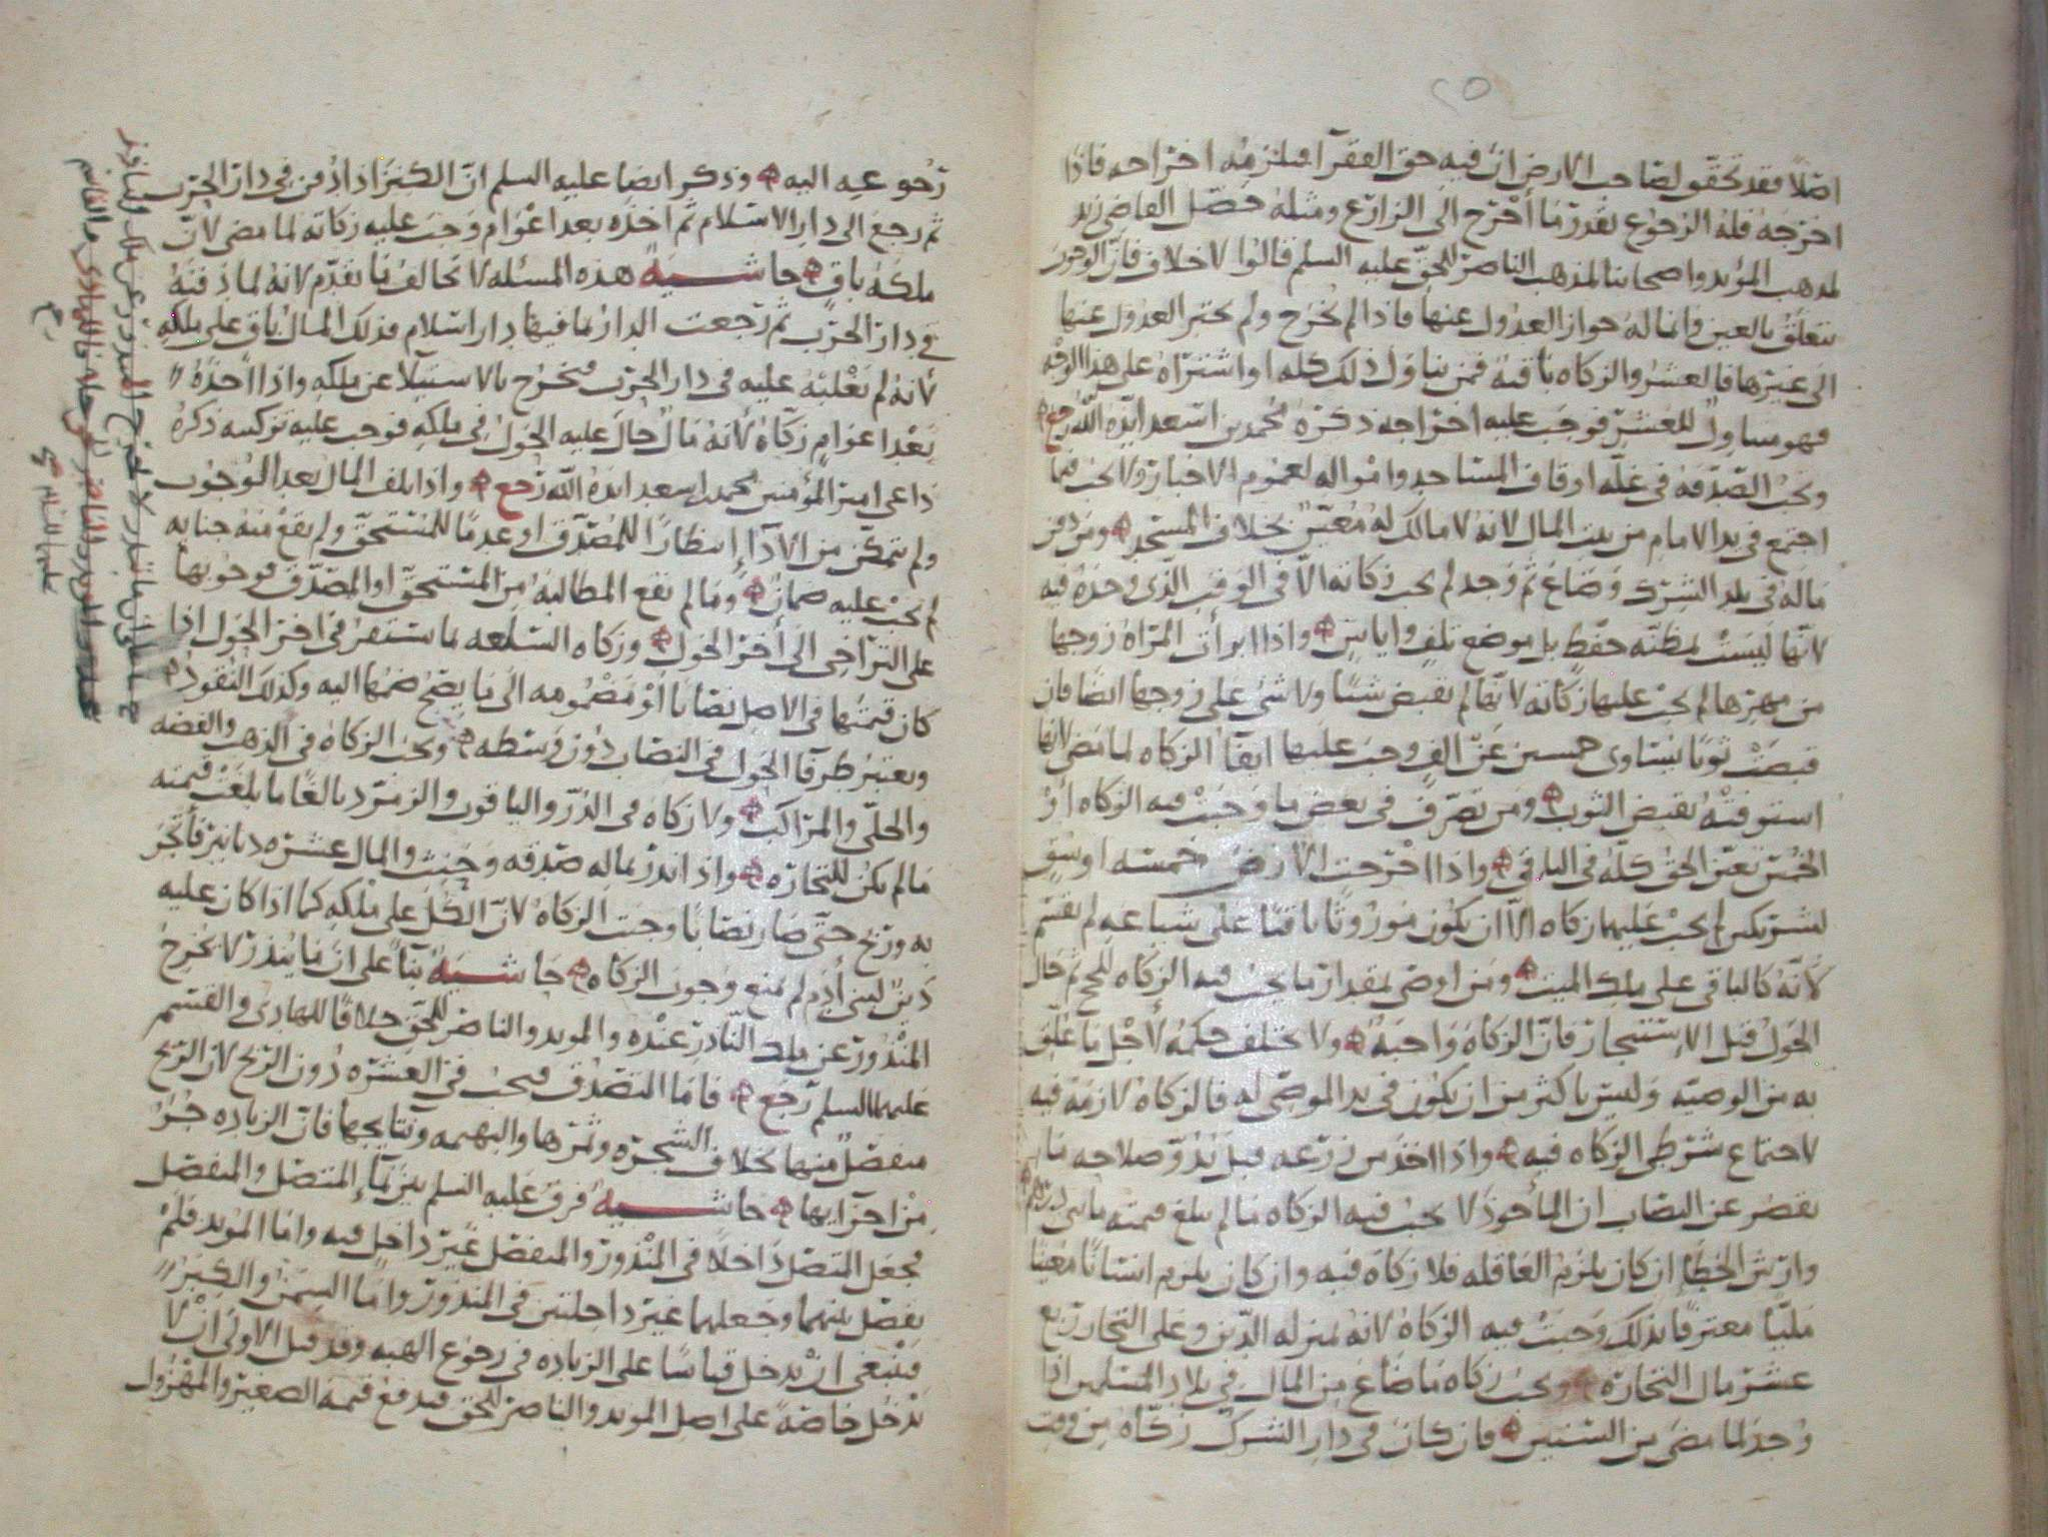 ٢٥
اصلا فقد تحقق لصاحب الارض ان فيه حق الفقرآ فيلزمه اخراجه فاذا
اخرجه فله الرجوع بقدر ما أخرج الى الزارع ومثله حصّل القاضي زيد
لمذهب المؤيد واصحابنا لمذهب الناصر للحق عليه السلم قالوا لا خلاف فان الوجوب
يتعلق بالعين وانما له جواز العدول عنها فاذا لم يخرج ولم يختر العدول عنها
الى غيرها فالعشر والزكاه باقيه فمن تناول ذلك كله او اشتراه على هذا الوجه
فهو متناول للعشر فوجب عليه اخراجه ذكره محمد بن اسعد ايده الله رجع
وتجب الصدقه في غله اوقاف المساجد وامواله لعموم الاخبار ولا تجب فيما
اجتمع في يد الامام من بيت المال لانه لا مالك له معين بخلاف المسجد ومن دفن
ماله في بلد الشرك وضاع ثم وجد لم تجب زكاته الا في الوقت الذي وجده فيه
لانها ليست بمظنه حفظ بل موضع تلف واياس واذا ابرأت المرأه زوجها
من مهرها لم تجب عليها زكاته لانها لم تقبض شيئا ولا شي على زوجها ايضا فان
قبضت ثوبا يساوي خمسين عن الف وجب عليها ايضا الزكاه لما مضى لانها
استوفته بقبض الثوب ومن تصرف في بعض ما وجبت فيه الزكاه او
الخمس تعين الحق كله في الباقي واذا اخرجت الارض خمسه اوسق
لشريكين لم تجب عليهما زكاه الا ان يكون موروثا باقيا على شياعه لم يقسم
لأنه كالباقي على ملك الميت ومن اوصى بمقدار ما يجب فيه الزكاه للحج ثم حال
الحول قبل الاستئجار فان الزكاه واجبه ولا يختلف حكمه لأجل ما علق
به من الوصيه وليس باكثر من ان يكون في يد الموصى له فالزكاه لازمه فيه
لاجتماع شرطي الزكاه فيه واذا اخذ من زرعه قبل بدو صلاحه ما
يقصر عن النصاب ان المأخوذ لا تجب فيه الزكاه ما لم يبلغ قيمته مائتي درهم
وارش الخطإ ان كان يلزم العاقله فلا زكاه فيه وان كان يلزم انسانا معينا
مليا معترفا بذلك وجبت فيه الزكاه لانه بمنزله الدين وعلى التجار ربع
عشر مال التجاره وتجب زكاه ما ضاع من المال في بلاد المسلمين اذا
وجد لما مضى من السنين فان كان في دار الشرك زكاه من وقت
رجوعه اليه وذكر ايضا عليه السلم ان الكنز اذا دفن في دار الحرب
ثم رجع الى دار الاسلام ثم اخذه بعد اعوام وجب عليه زكاته لما مضى لان
ملكه باق حاشيه هذه المسئله لا تخالف ما تقدم لانه لما دفنه
في دار الحرب ثم رجعت الدار بما فيها دار اسلام فذلك المال باق على ملكه
لأنه لم يغلبه عليه في دار الحرب فيخرج بالاستيلا عن ملكه واذا أخذه
بعد اعوام زكاه لأنه مال حال عليه الحول في ملكه فوجب عليه تزكيته ذكره
داعي امير المؤمنين محمد بن اسعد ايده الله رجع واذا تلف المال بعد الوجوب
ولم يتمكن من الاداء إنتظارا للمصدق او عدما للمستحق ولم يقع منه جنايه
لم يجب عليه ضمان وما لم تقع المطالبه من المستحق او المصدق فوجوبها
على التراخي الى أخر الحول وزكاه السلعه ما يستقر في اخر الحول اذا
كان قيمتها في الاصل نصابا او مضمومه الى ما يصح ضمها اليه وكذلك النقود
ويعتبر طرفا الحول في النصاب دون وسطه وتجب الزكاه في الذهب والفضه
والحلي والمراكب ولا زكاه في الدر والياقوت والزمرد بالغا ما بلغت قيمته
ما لم يكن للتجاره واذا نذر بماله صدقه وحنث والمال عشره دنانير فأتجر
به وربح حتى صار نصابا وجبت الزكاه لان الكل على ملكه كما اذا كان عليه
دين لبني آدم لم يمنع وجوب الزكاه حاشيه بنآ على ان ما ينذر لا يخرج
المنذور عن ملك الناذر عنده والمويد والناصر للحق خلافا للهادي والقسم
عليهما السلم رجع فاما التصدق فيجب في العشره دون الربح لان الربح
منفصل منها بخلاف الشجره وثمرها والبهيمه ونتايجها فان الزياده جزو
من اجزايها حاشيه فرق عليه السلم بين نمآء المتصل والمنفصل
فجعل المتصل داخلا في المنذور والمنفصل غير داخل فيه واما المويد فلم
يفصل بينهما وجعلهما غير داخلتين في المنذور واما السمن والكبر
فينبغي ان يدخل قياسا على الزياده في رجوع الهبه وقد قيل الاولى ان لا
يدخل خاصة على اصل المويد والناصر للحق فيدفع قيمة الصغير والمهزول